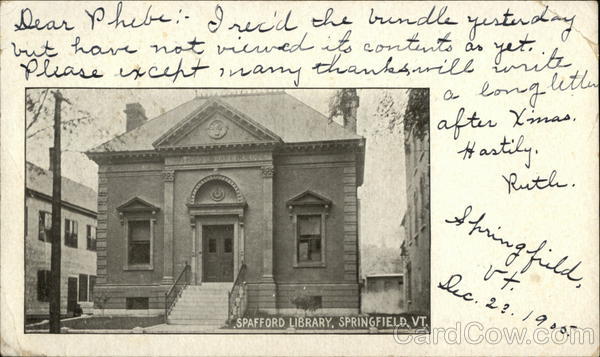 Dear Phebe:- I rec'd the bundle yesterday
but have not viewed its contents as yet.
Please except many thanks will write
a long letter
after Xmas.
Hastily,
Ruth.
Springfield,
Vt.
Dec. 23. 1905.
SPAFFORD LIBRARY, SPRINGFIELD, VT.
CardCow.com